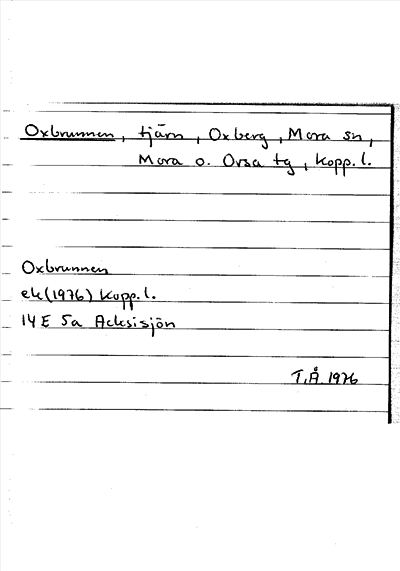 Oxbrunnen, tjärn, Oxberg, Mora sn,
Mora o. Orsa tg, Kopp. l.
Oxbrunnen
ek (1976) Kopp. l.
14 E 5a Acksisjön
T.Å. 1976